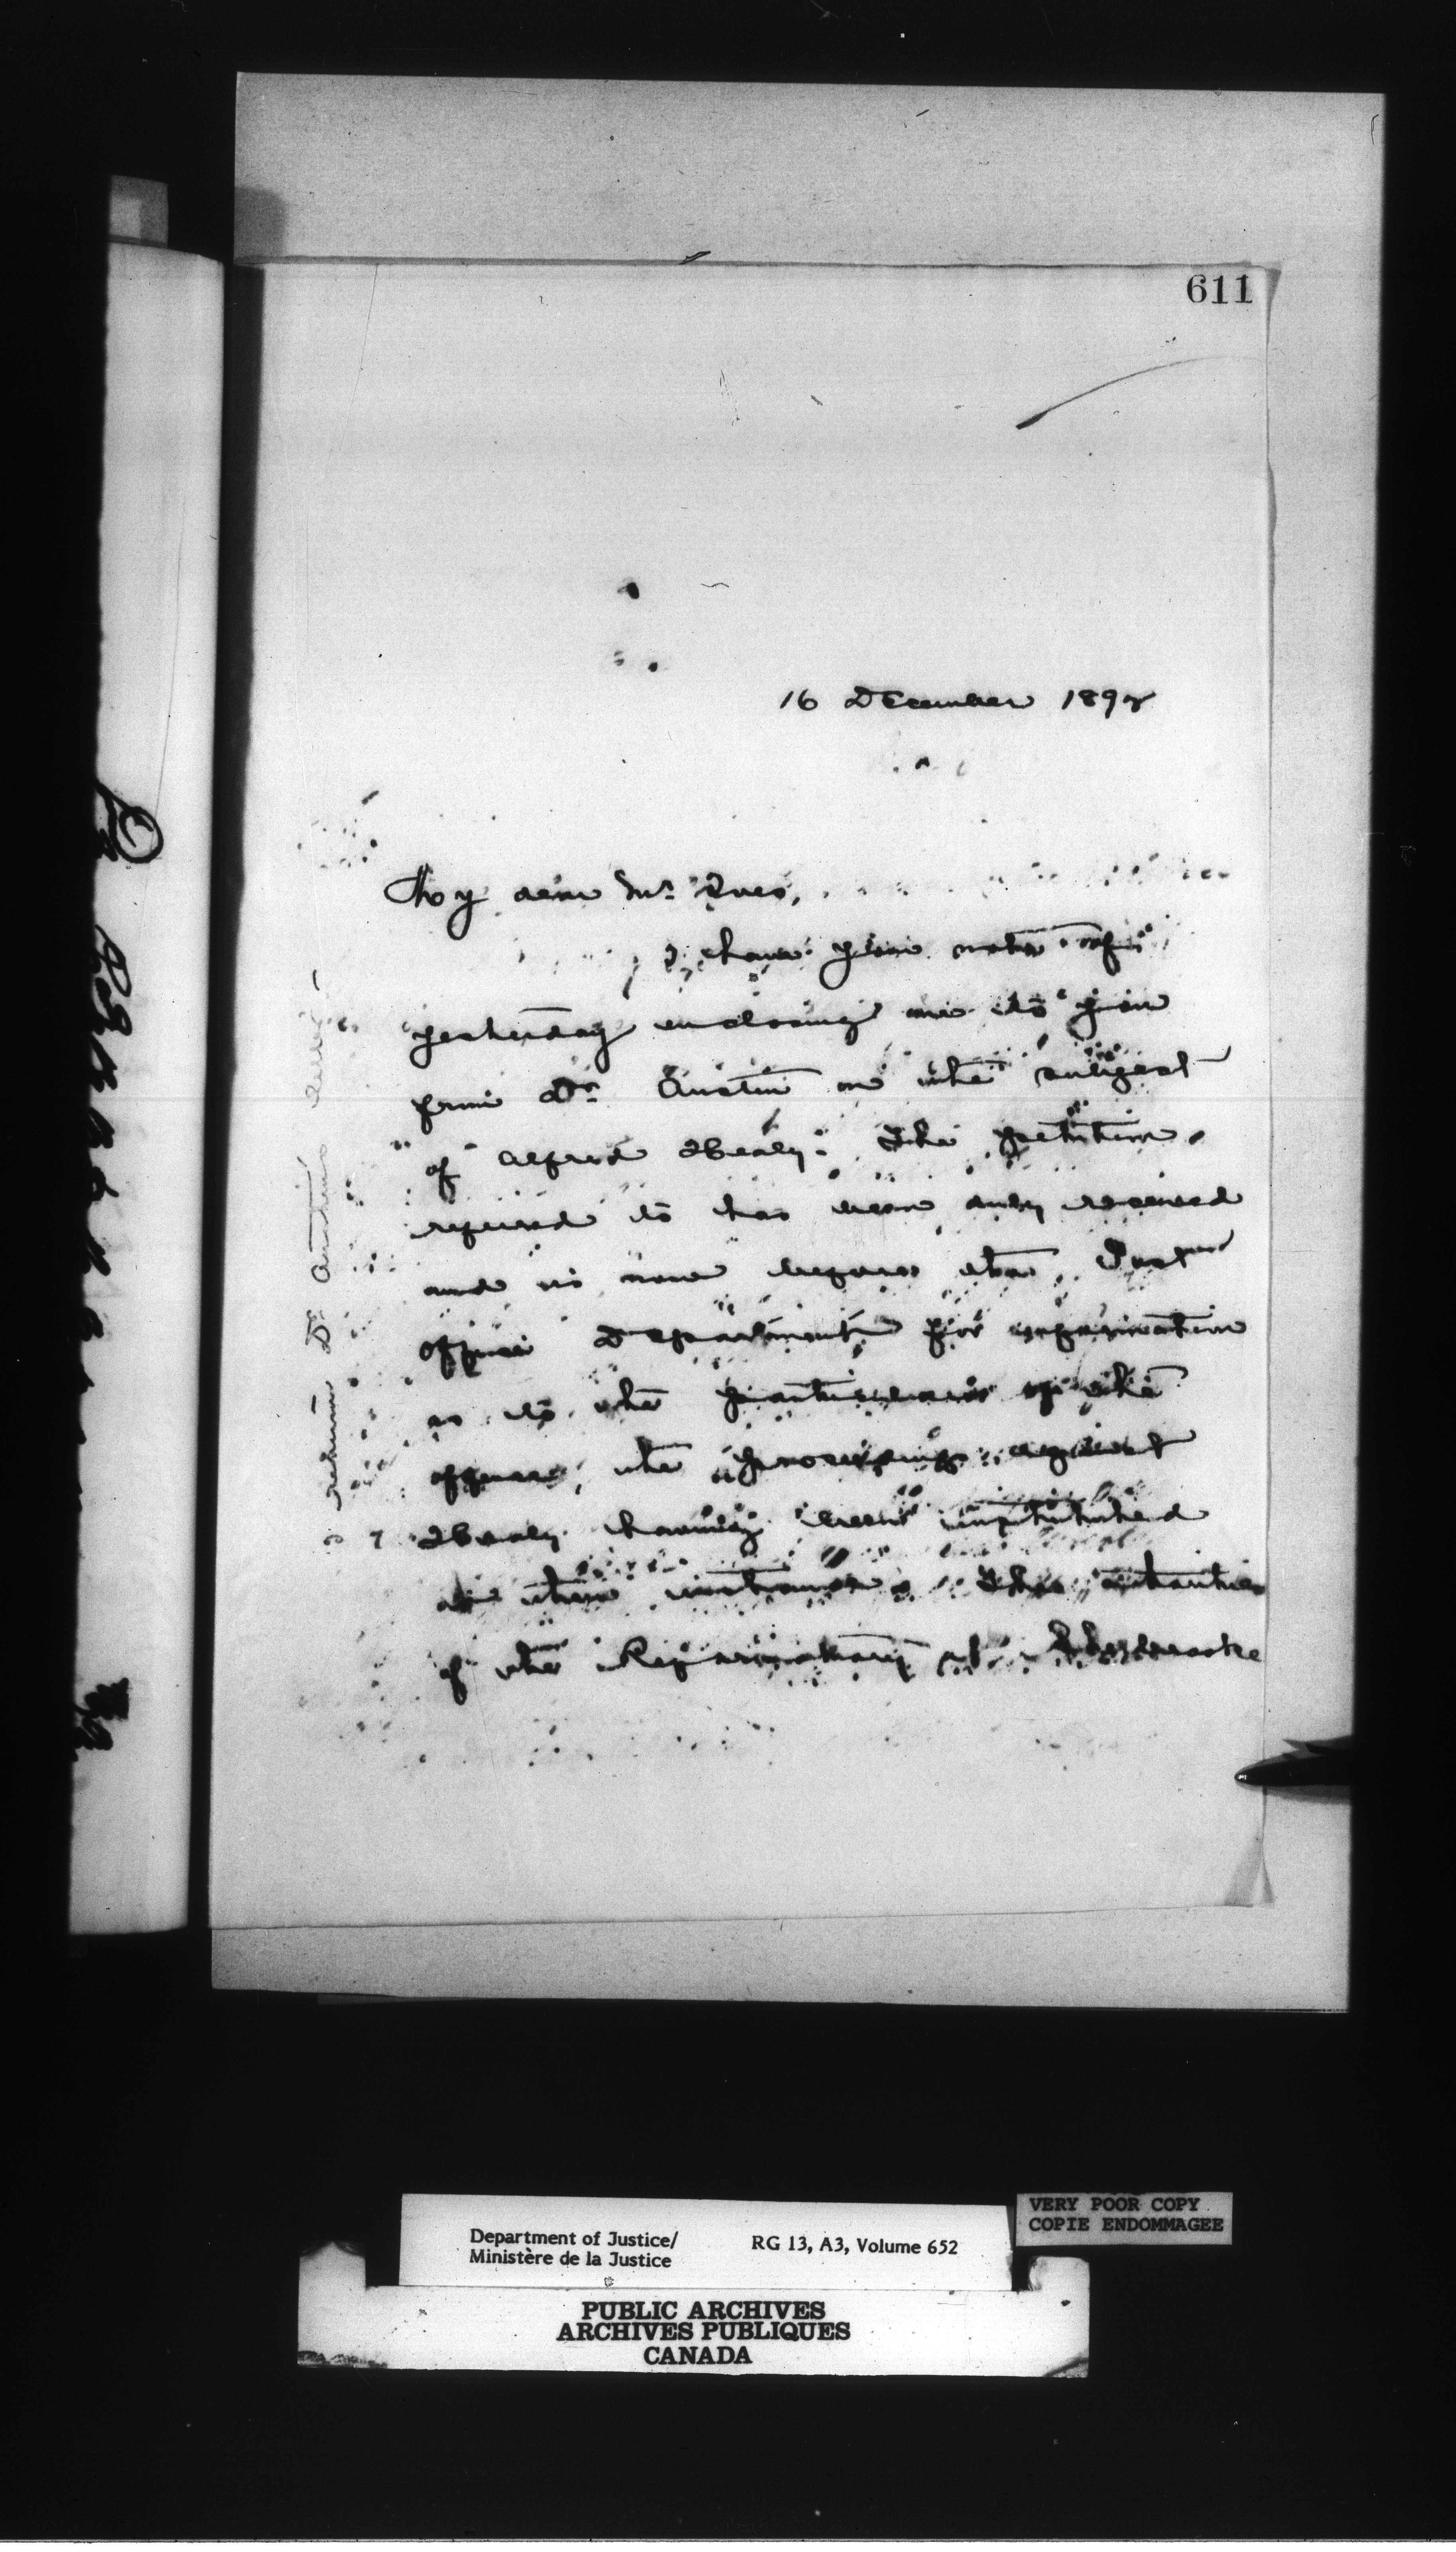 611
16 December 1897
My dear Mr. Ives,
I have your note of
yesterday enclosing me to you
from Dr. Austin on the subject
of Alfred Healy. The petition
referred to has been duly received
and is now before the Post
Office Department for information
as to the particulars of the
offence, the proceedings against
Healy having been instituted
at their instance. The authorities
of the Reformatory at Sherbrooke
I return Dr Austin's letter
Department of Justice/
Ministère de la Justice
RG 13, A3, Volume 652
VERY POOR COPY
COPIE ENDOMMAGEE
PUBLIC ARCHIVES
ARCHIVES PUBLIQUES
CANADA